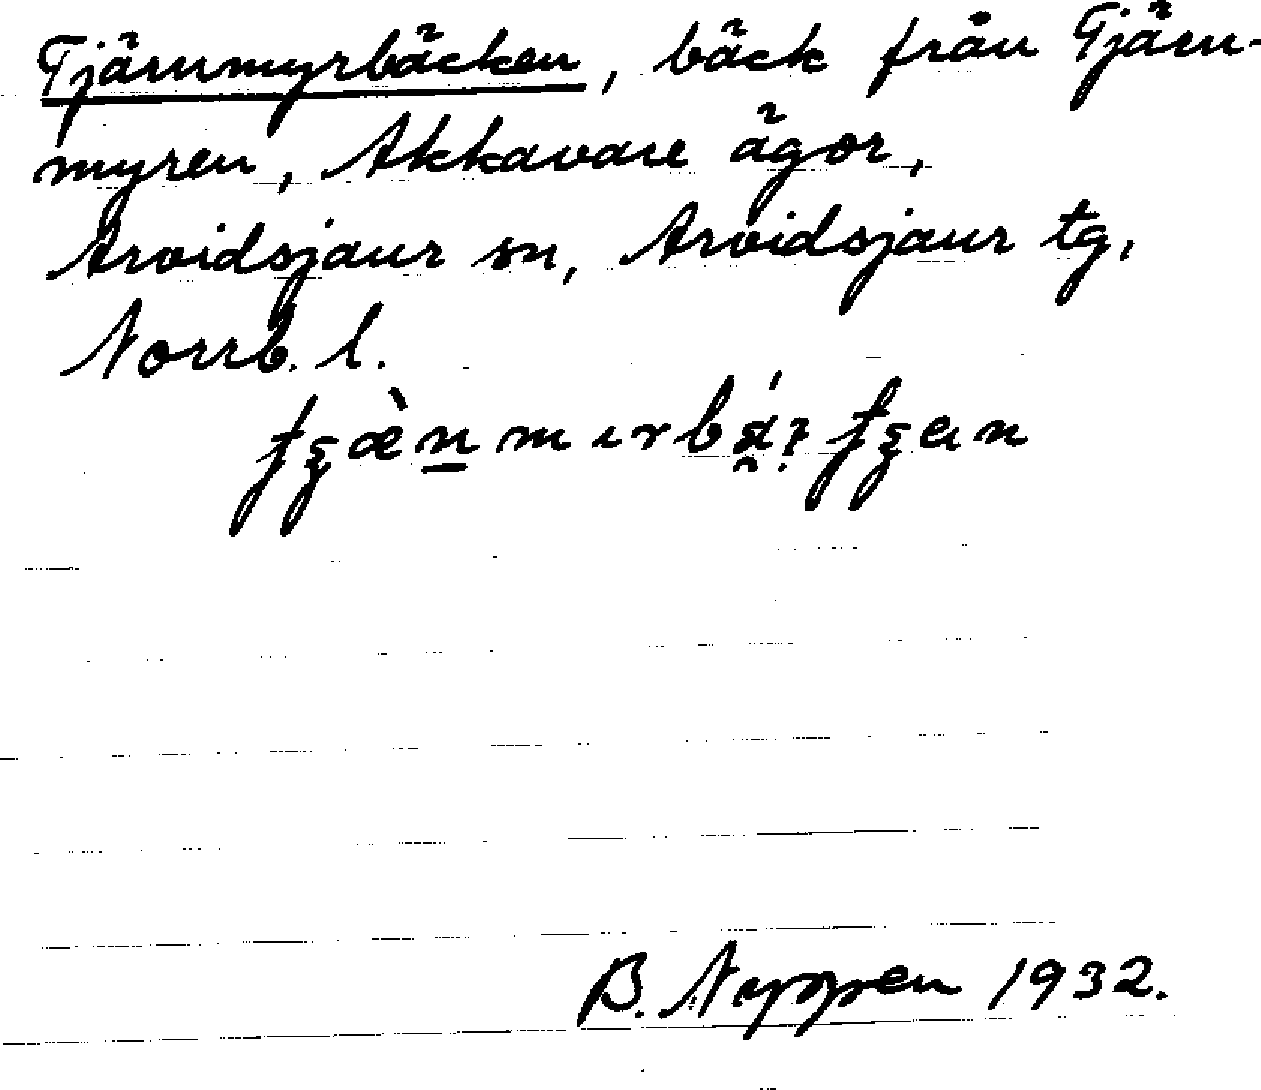 Tjärnmyrbäcken, bäck från Tjärn-
myren, Akkavare ägor,
Arvidsjaur sn, Arvidsjaur tg,
Norrb. l.
B. Nappen 1932.